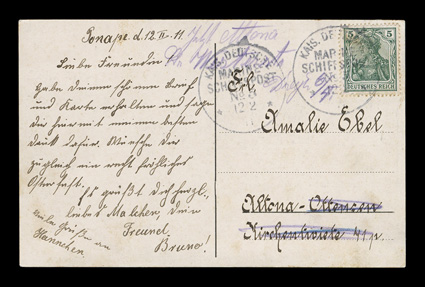 Ponape. d. 12 II. 11
Liebe Freundin
Habe Deinen schönen Brief
und Karte erhalten und sage
dir hiermit meinen besten
dank dafür. Wünsche dir
zugleich ein recht fröhliches
Osterfest.
Es grüßt dich herzl.,
liebes Malchen, dein
Freund
Bruno!
liebe Grüße an
Hannchen
KAIS. DEUTSCHE
MARINE
SCHIFFSPOST
No
12 2
KAIS. DE
MAR
SCHIF
5 5
DEUTSCHES REICH
Frl.
Amalie Ebel
Altona - Ottensen